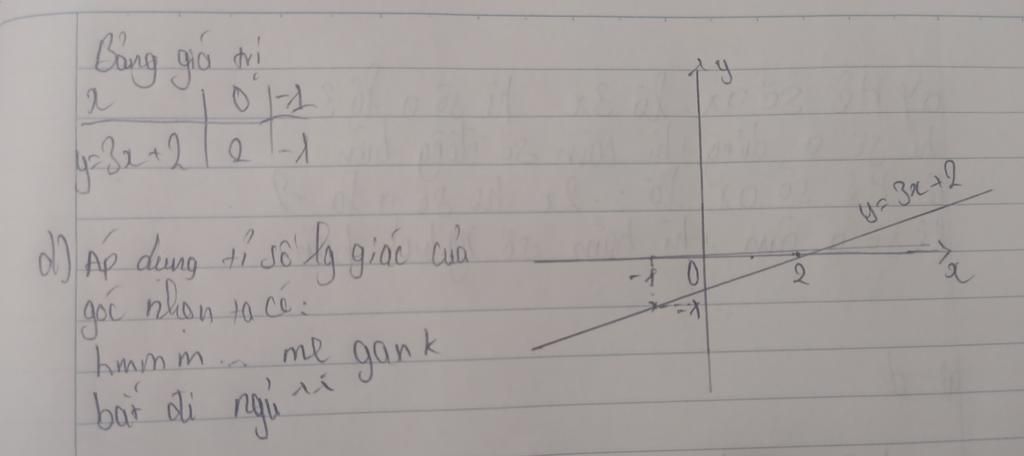 Bảng giá trị
x | 0 | -1
y=3x+2 | 2 | -1
d) Áp dụng tỉ số lg giác của
góc nhọn ta có:
hmmm... mẹ gank
bắt đi ngủ
y
y=3x+2
-1 0 2 x
-1